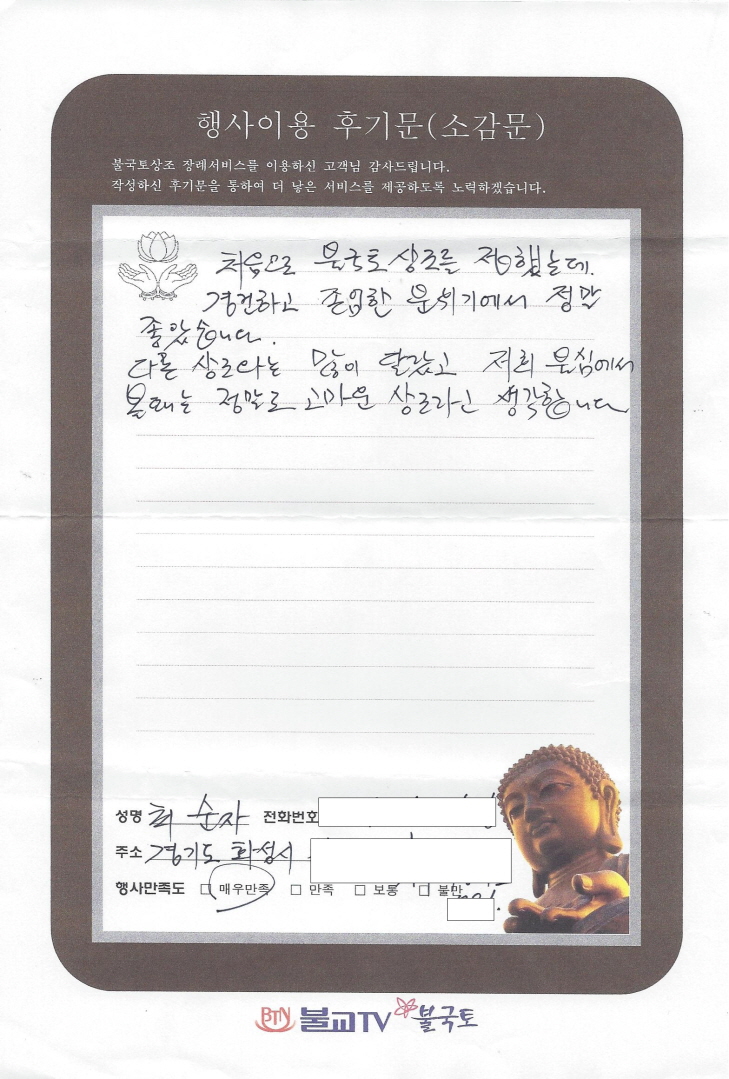 행사이용 후기문(소감문)
불국토상조 장례서비스를 이용하신 고객님 감사드립니다.
작성하신 후기문을 통하여 더 낳은 서비스를 제공하도록 노력하겠습니다.
처음으로 불국토 상조를 접했는데.
경건하고 존엄한 분위기에서 정말
좋았습니다.
다른 상조와는 많이 달랐고 저희 불심에서
볼때는 정말로 고마운 상조라고 생각합니다
성명 최순자 전화번호
주소 경기도 화성시
행사만족도 □ 매우만족 □ 만족 □ 보통 □ 불만
BTN 불교TV 불국토